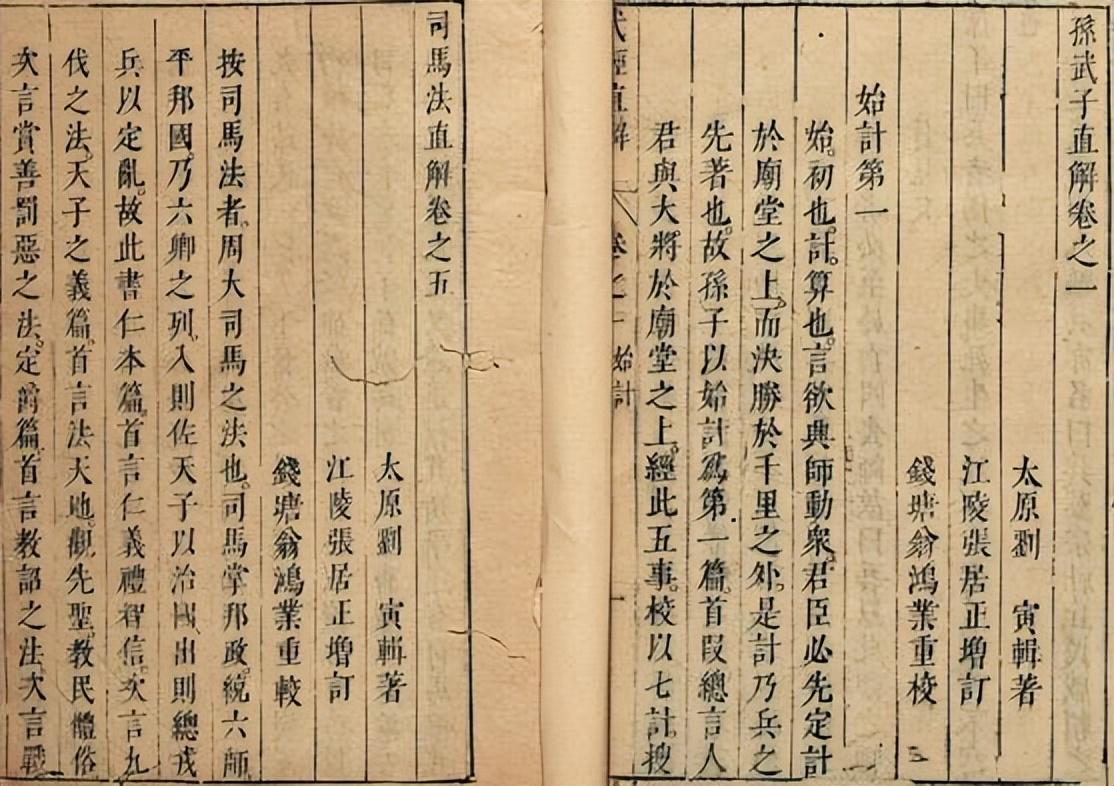 孫武子直解卷之一
太原劉　寅輯著
江陵張居正增訂
錢塘翁鴻業重校
始計第一
始。初也。計。算也。言欲興師動衆。君臣必先定計
於廟堂之上。而決勝於千里之外。是計乃兵之
先著也。故孫子以始計爲第一篇。首段總言人
君與大將於廟堂之上。經此五事。校以七計。搜
武經直解　卷之一　始計　一
司馬法直解卷之五
太原劉　寅輯著
江陵張居正增訂
錢塘翁鴻業重較
按司馬法者。周大司馬之法也。司馬掌邦政。統六師
平邦國。乃六卿之列。入則佐天子以治國。出則總戎
兵以定亂。故此書仁本篇。首言仁義禮智信。次言九
伐之法。天子之義篇。首言法天地。觀先聖。教民體俗
次言賞善罰惡之法。定爵篇。首言教詔之法。次言戰